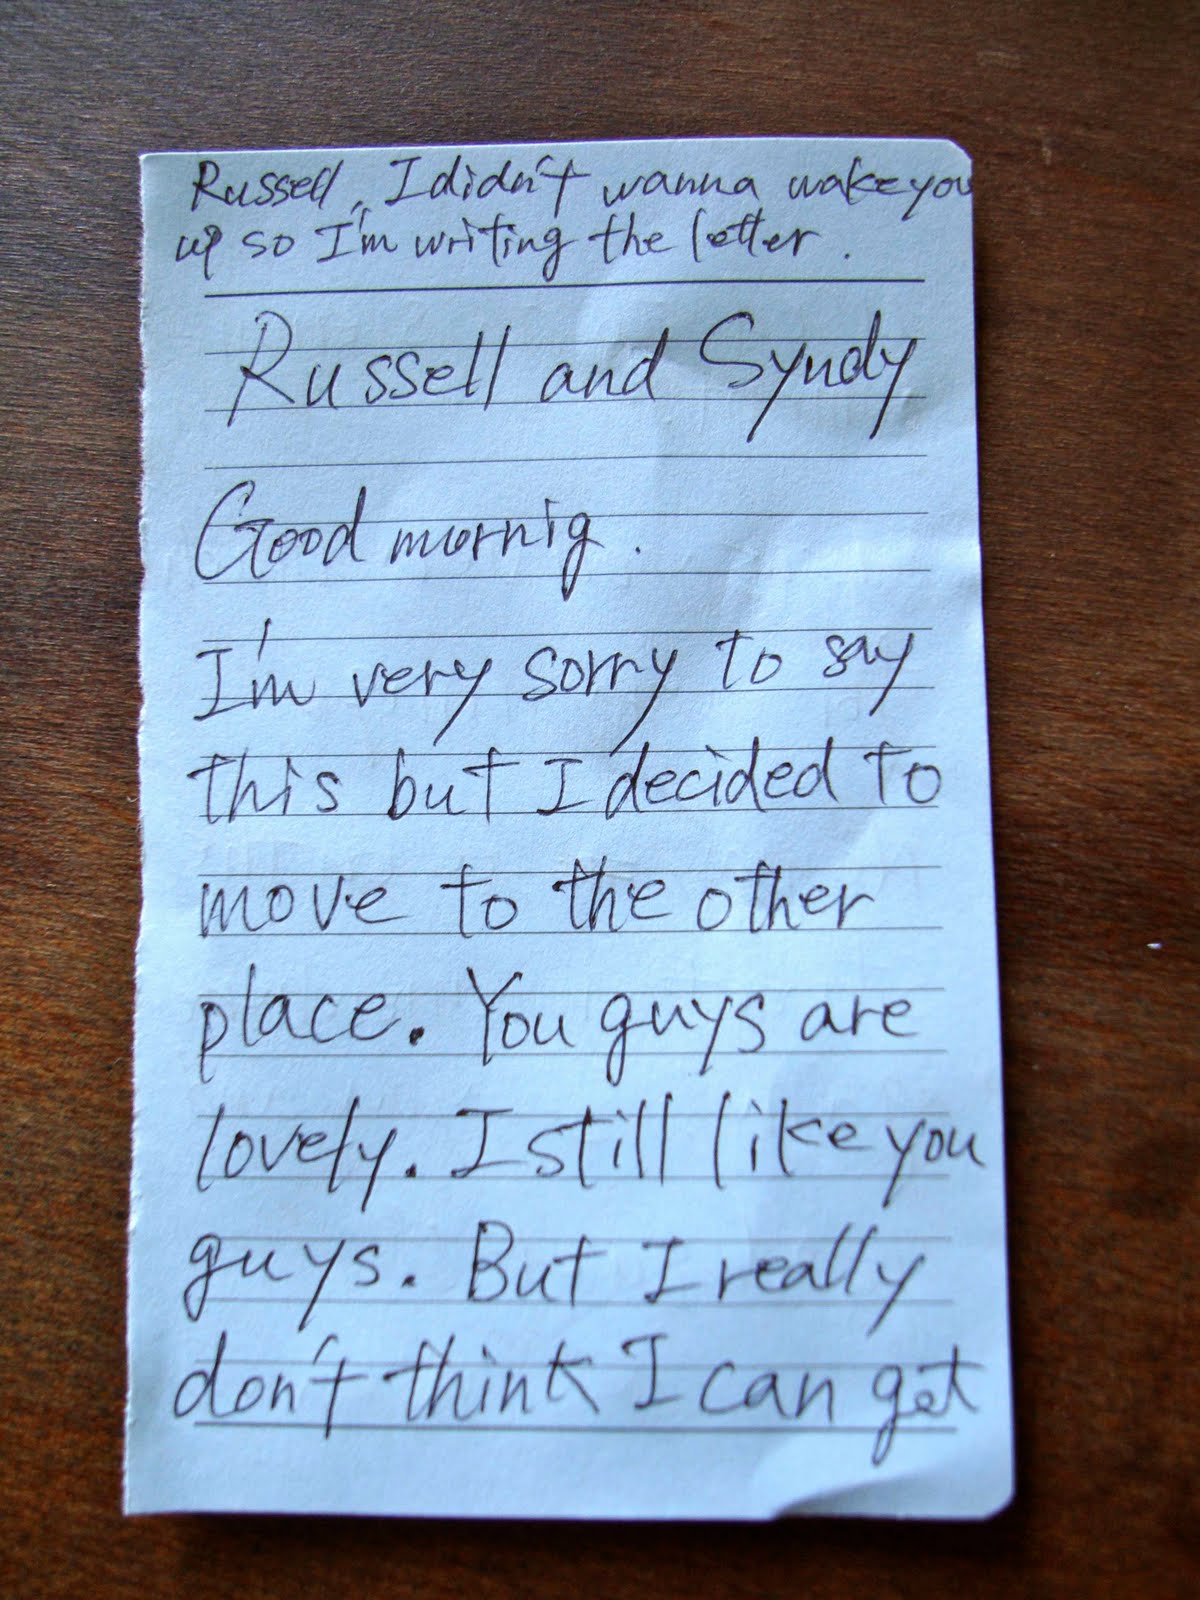 Russell, I didn't wanna wake you
up so I'm writing the letter.
Russell and Syndy
Good mornig.
I'm very sorry to say
this but I decided to
move to the other
place. You guys are
lovely. I still like you
guys. But I really
don't think I can get